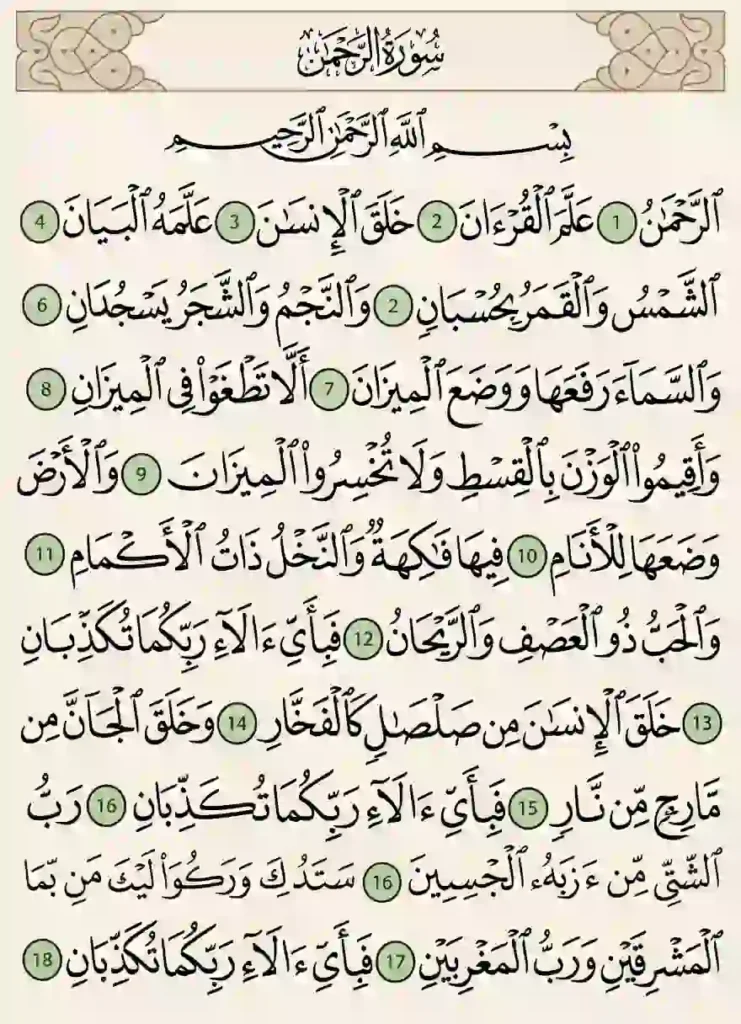 سُورَةُ الرَّحْمَٰن
بِسْمِ ٱللَّهِ ٱلرَّحْمَٰنِ ٱلرَّحِيمِ
ٱلرَّحْمَٰنُ 1 عَلَّمَ ٱلْقُرْءَانَ 2 خَلَقَ ٱلْإِنسَٰنَ 3 عَلَّمَهُ ٱلْبَيَانَ 4
ٱلشَّمْسُ وَٱلْقَمَرُ بِحُسْبَانٍ 2 وَٱلنَّجْمُ وَٱلشَّجَرُ يَسْجُدَانِ 6
وَٱلسَّمَآءَ رَفَعَهَا وَوَضَعَ ٱلْمِيزَانَ 7 أَلَّا تَطْغَوْا۟ فِى ٱلْمِيزَانِ 8
وَأَقِيمُوا۟ ٱلْوَزْنَ بِٱلْقِسْطِ وَلَا تُخْسِرُوا۟ ٱلْمِيزَانَ 9 وَٱلْأَرْضَ
وَضَعَهَا لِلْأَنَامِ 10 فِيهَا فَٰكِهَةٌ وَٱلنَّخْلُ ذَاتُ ٱلْأَكْمَامِ 11
وَٱلْحَبُّ ذُو ٱلْعَصْفِ وَٱلرَّيْحَانُ 12 فَبِأَىِّ ءَالَآءِ رَبِّكُمَا تُكَذِّبَانِ
13 خَلَقَ ٱلْإِنسَٰنَ مِن صَلْصَٰلٍ كَٱلْفَخَّارِ 14 وَخَلَقَ ٱلْجَآنَّ مِن
مَّارِجٍ مِّن نَّارٍ 15 فَبِأَىِّ ءَالَآءِ رَبِّكُمَا تُكَذِّبَانِ 16 رَبُّ
ٱلشَّتِّى مِّن ءَزَبَهُۥ ٱلْجْسِسِينَ 16 سَتَدُكَ وَرَكُوَا۟ لَيْكَ مَن بِّمَا
ٱلْمَشْرِقَيْنِ وَرَبُّ ٱلْمَغْرِبَيْنِ 17 فَبِأَىِّ ءَالَآءِ رَبِّكُمَا تُكَذِّبَانِ 18